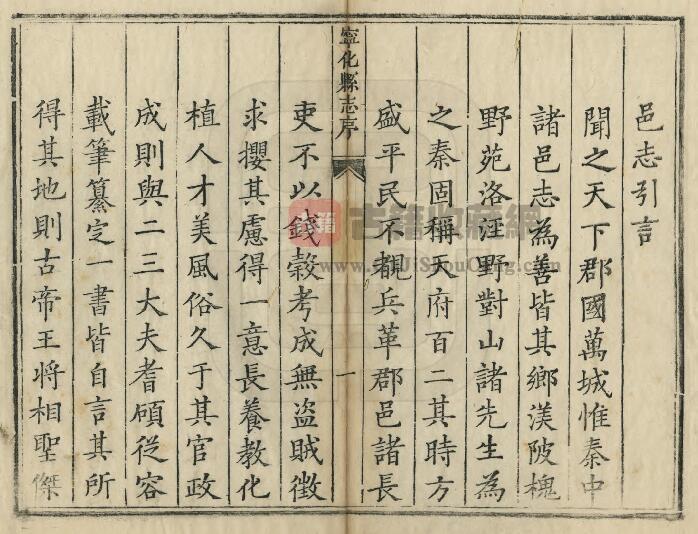 邑志引言
聞之天下郡國萬城惟秦中
諸邑志為善皆其鄉渼陂槐
野苑洛涇野對山諸先生為
之秦固稱天府百二其時方
盛平民不覩兵革郡邑諸長
寧化縣志序
一
吏不以錢穀考成無盗賊徴
求攖其慮得一意長養教化
植人才美風俗久于其官政
成則與二三大夫耆碩從容
載筆纂定一書皆自言其所
得其地則古帝王將相聖傑
古籍收藏網
www.GuJiShouCang.com